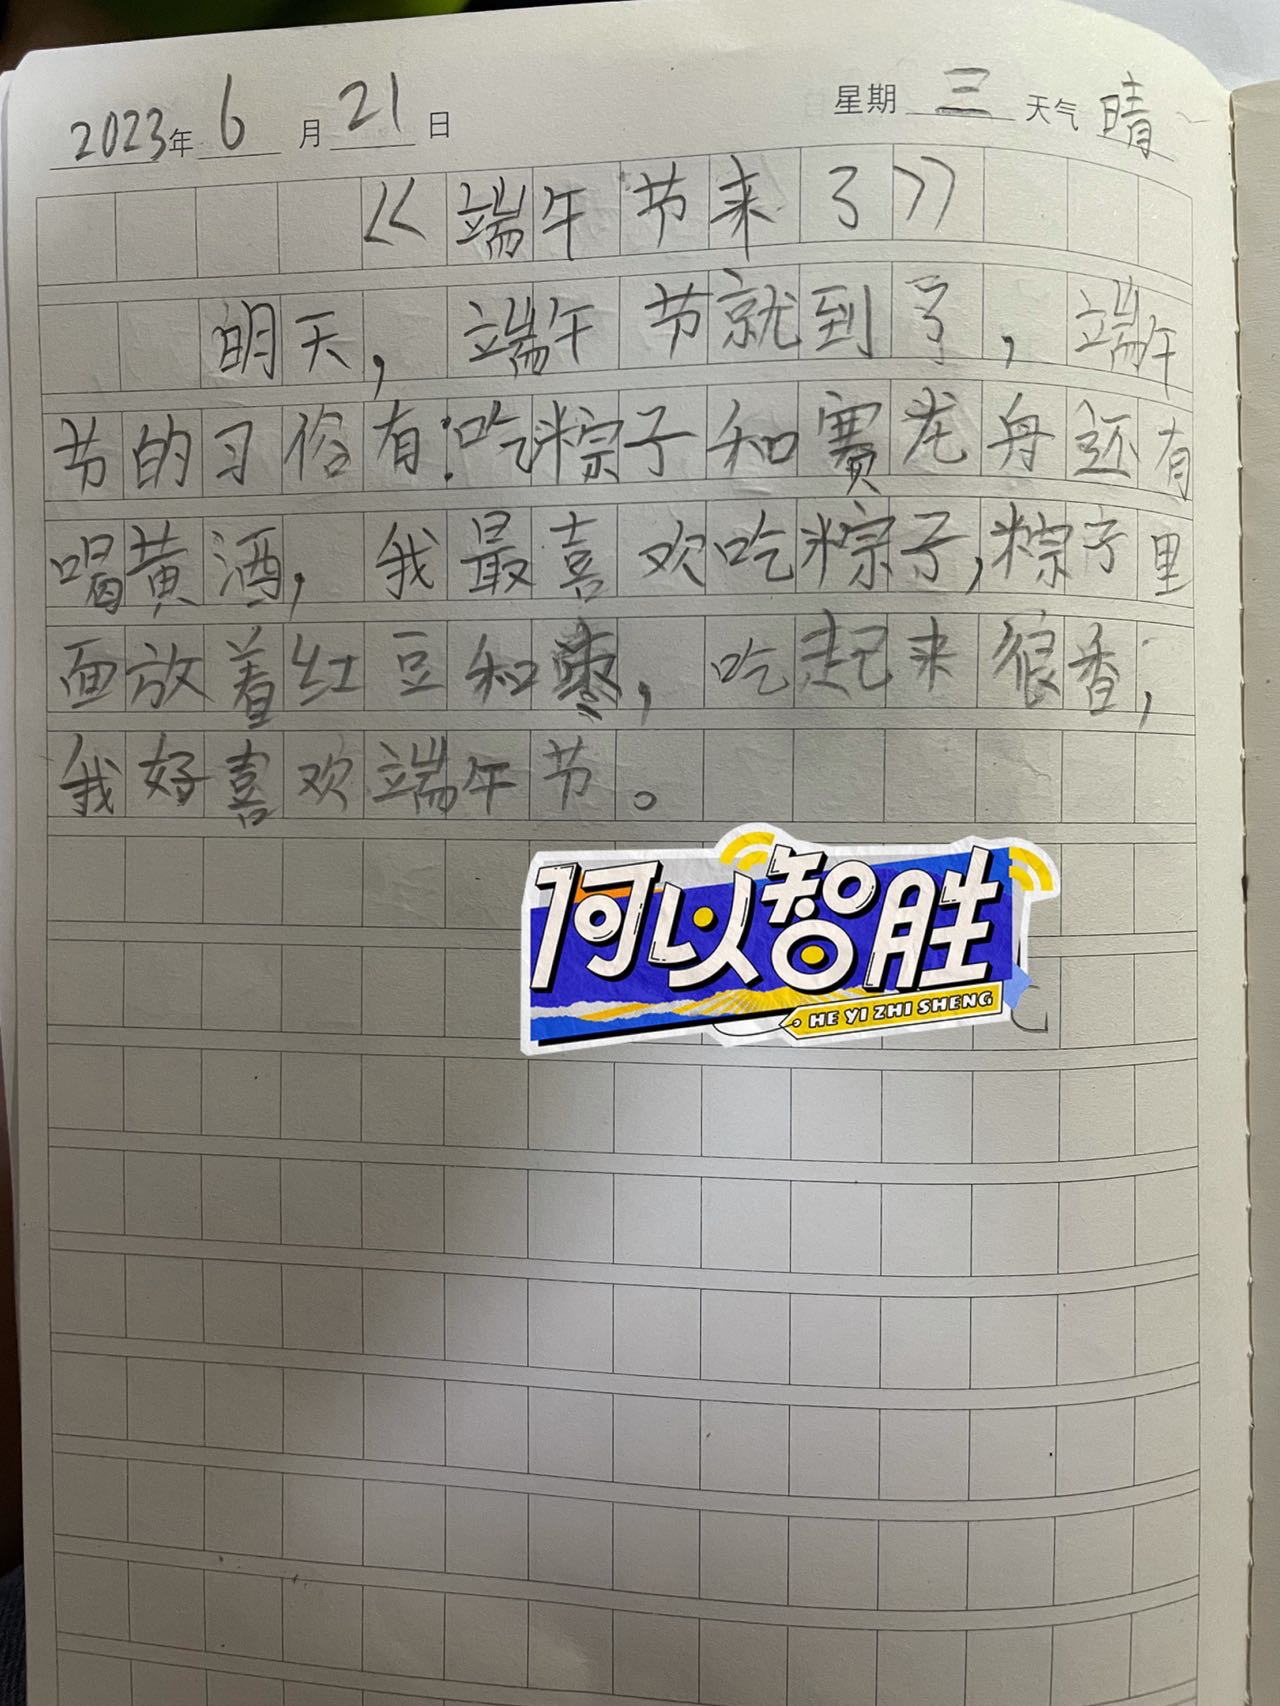 2023年 6 月 21 日 星期 三 天气 晴
《端午节来了》
明天，端午节就到了，端午
节的习俗有：吃粽子和赛龙舟还有
喝黄酒，我最喜欢吃粽子，粽子里
面放着红豆和枣，吃起来很香，
我好喜欢端午节。
何以智胜
HE YI ZHI SHENG